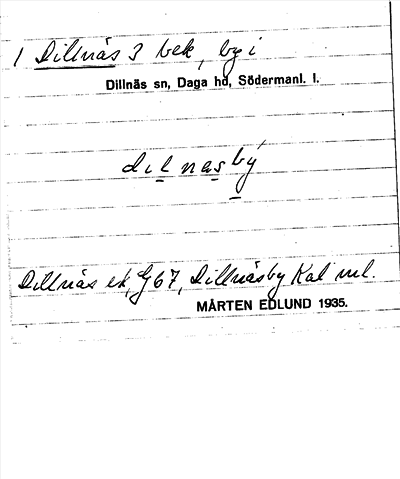 1 Dillnäs 3 bek, by i
Dillnäs sn, Daga hd, Södermanl. l.
dilnasby
Dillnäs ek, G67, Dillnäsby Kal ml.
MÅRTEN EDLUND 1935.